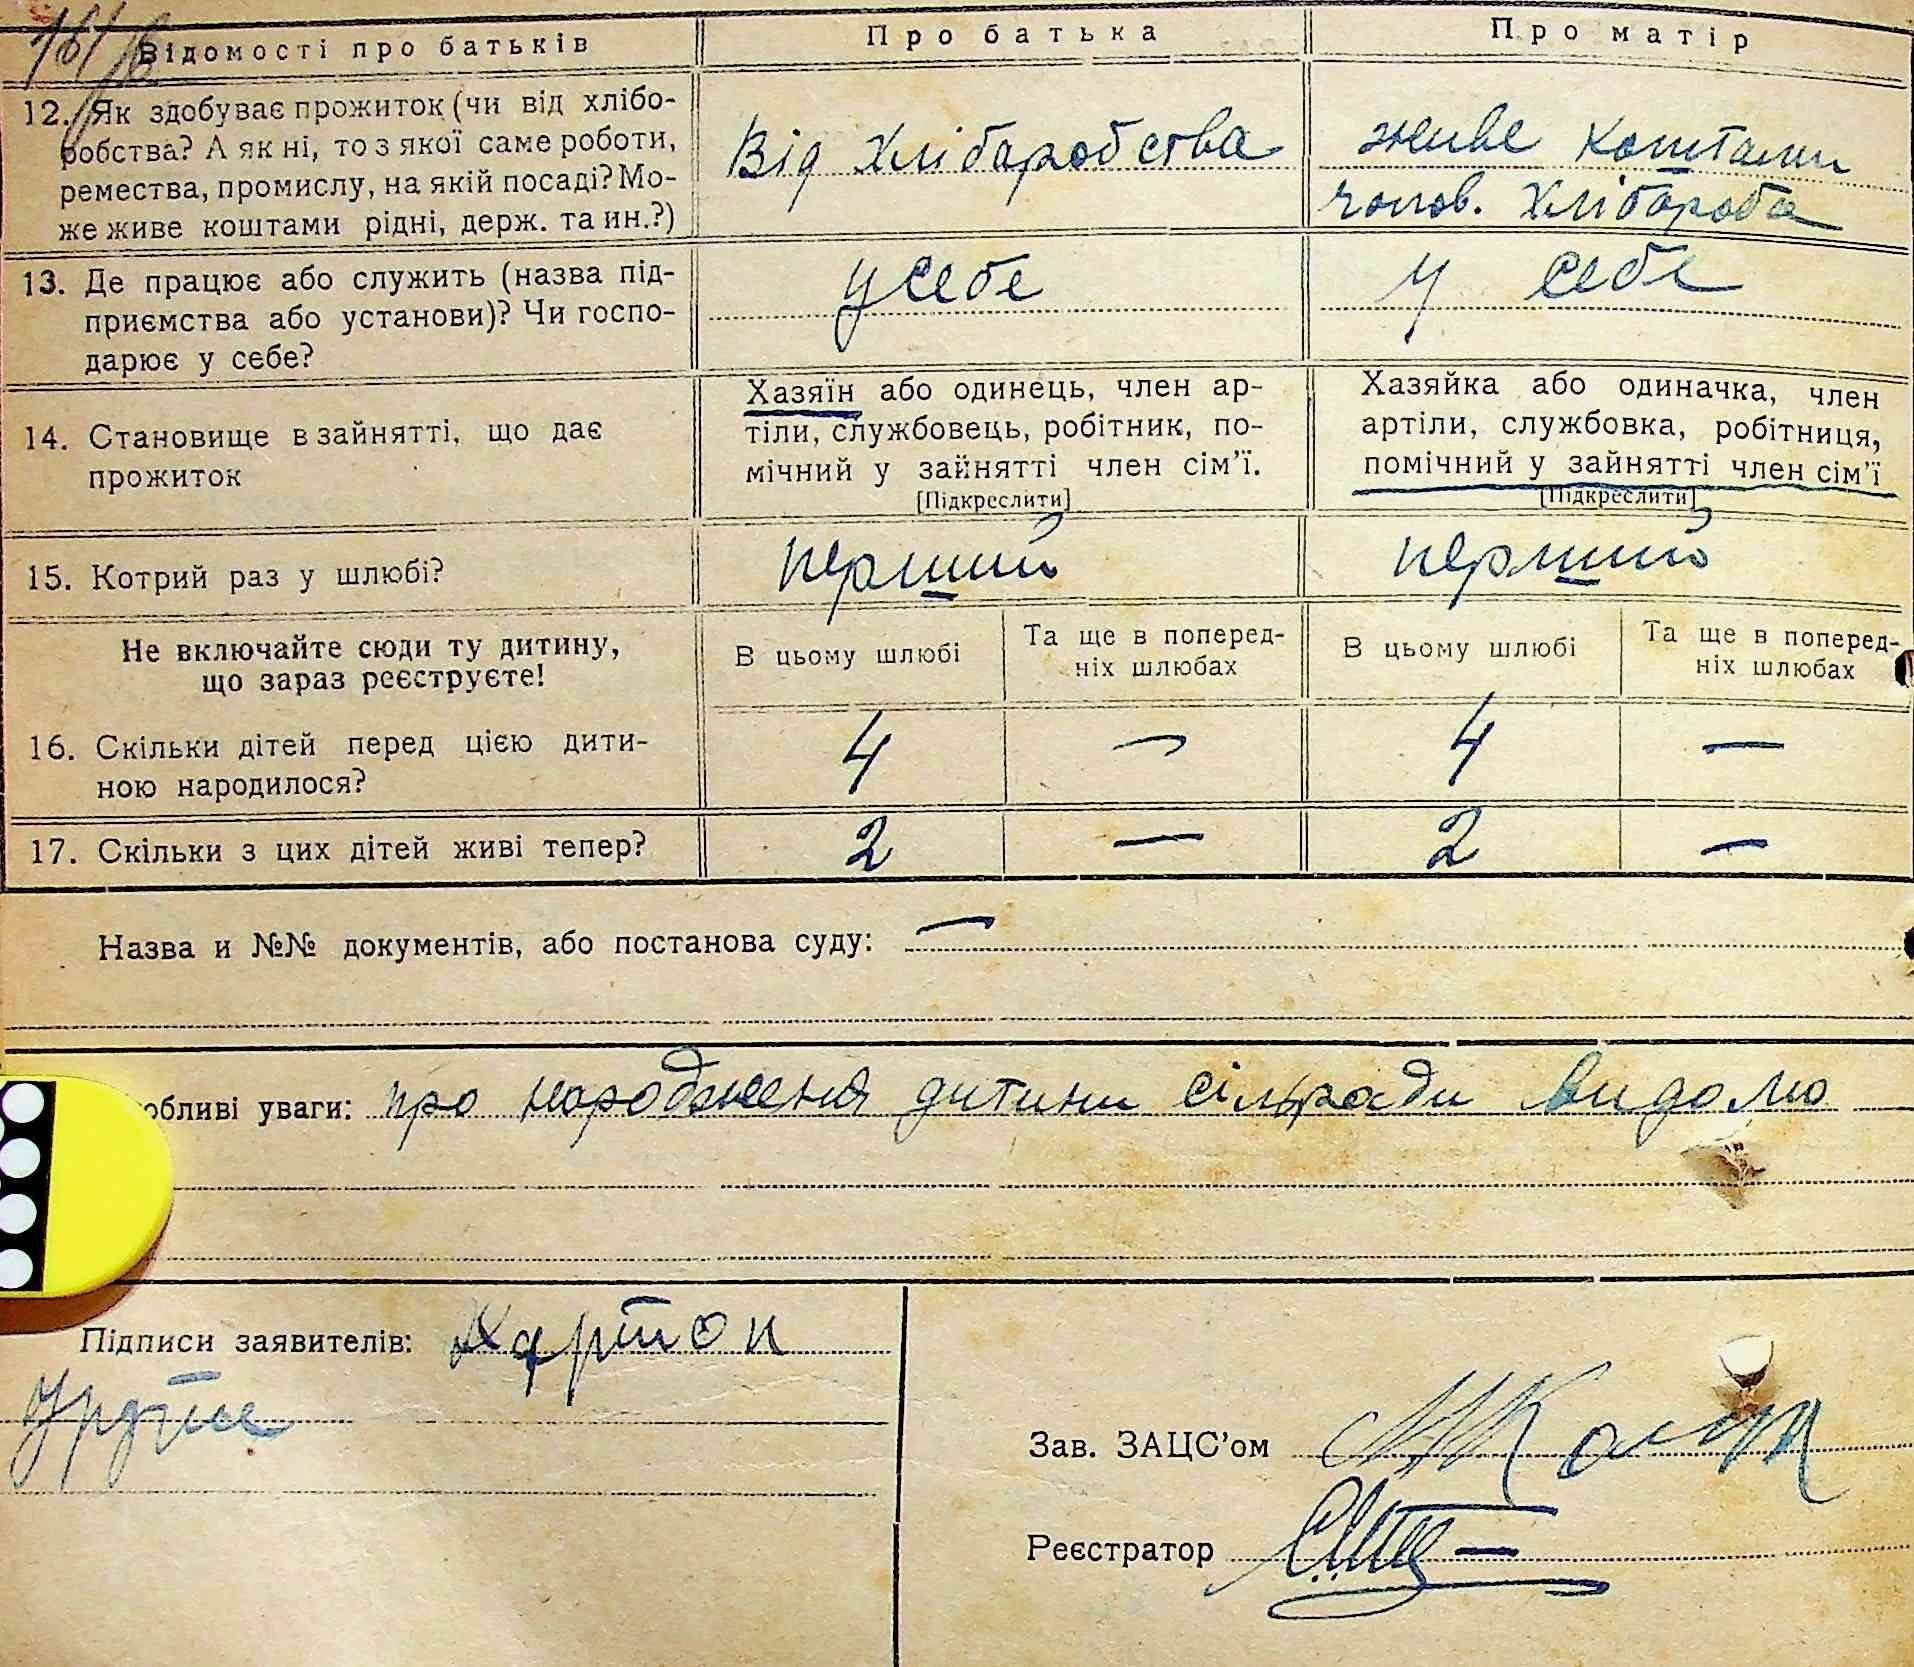 Відомості про батьків
Про батька
Про матір
12. Як здобуває прожиток (чи від хлібо-
робства? А як ні, то з якої саме роботи,
ремества, промислу, на якій посаді? Мо-
же живе коштами рідні, держ. та ин.?)
Від Хлібаробства
живе коштами
чолов. Хлібароба
13. Де працює або служить (назва під-
приємства або установи)? Чи госпо-
дарює у себе?
у себе
у себе
14. Становище в зайнятті, що дає
прожиток
Хазяїн або одинець, член ар-
тіли, службовець, робітник, по-
мічний у зайнятті член сім'ї.
[Підкреслити]
Хазяйка або одиначка, член
артіли, службовка, робітниця,
помічний у зайнятті член сім'ї
[Підкреслити]
15. Котрий раз у шлюбі?
перший
перший
Не включайте сюди ту дитину,
що зараз реєструєте!
В цьому шлюбі
Та ще в поперед-
ніх шлюбах
В цьому шлюбі
Та ще в поперед-
ніх шлюбах
16. Скільки дітей перед цією дити-
ною народилося?
4 — 4 —
17. Скільки з цих дітей живі тепер?
2 — 2 —
Назва и №№ документів, або постанова суду: —
обливі уваги: про народження дитини сільради видомо
Підписи заявителів: Харton
Зав. ЗАЦС'ом
Реєстратор